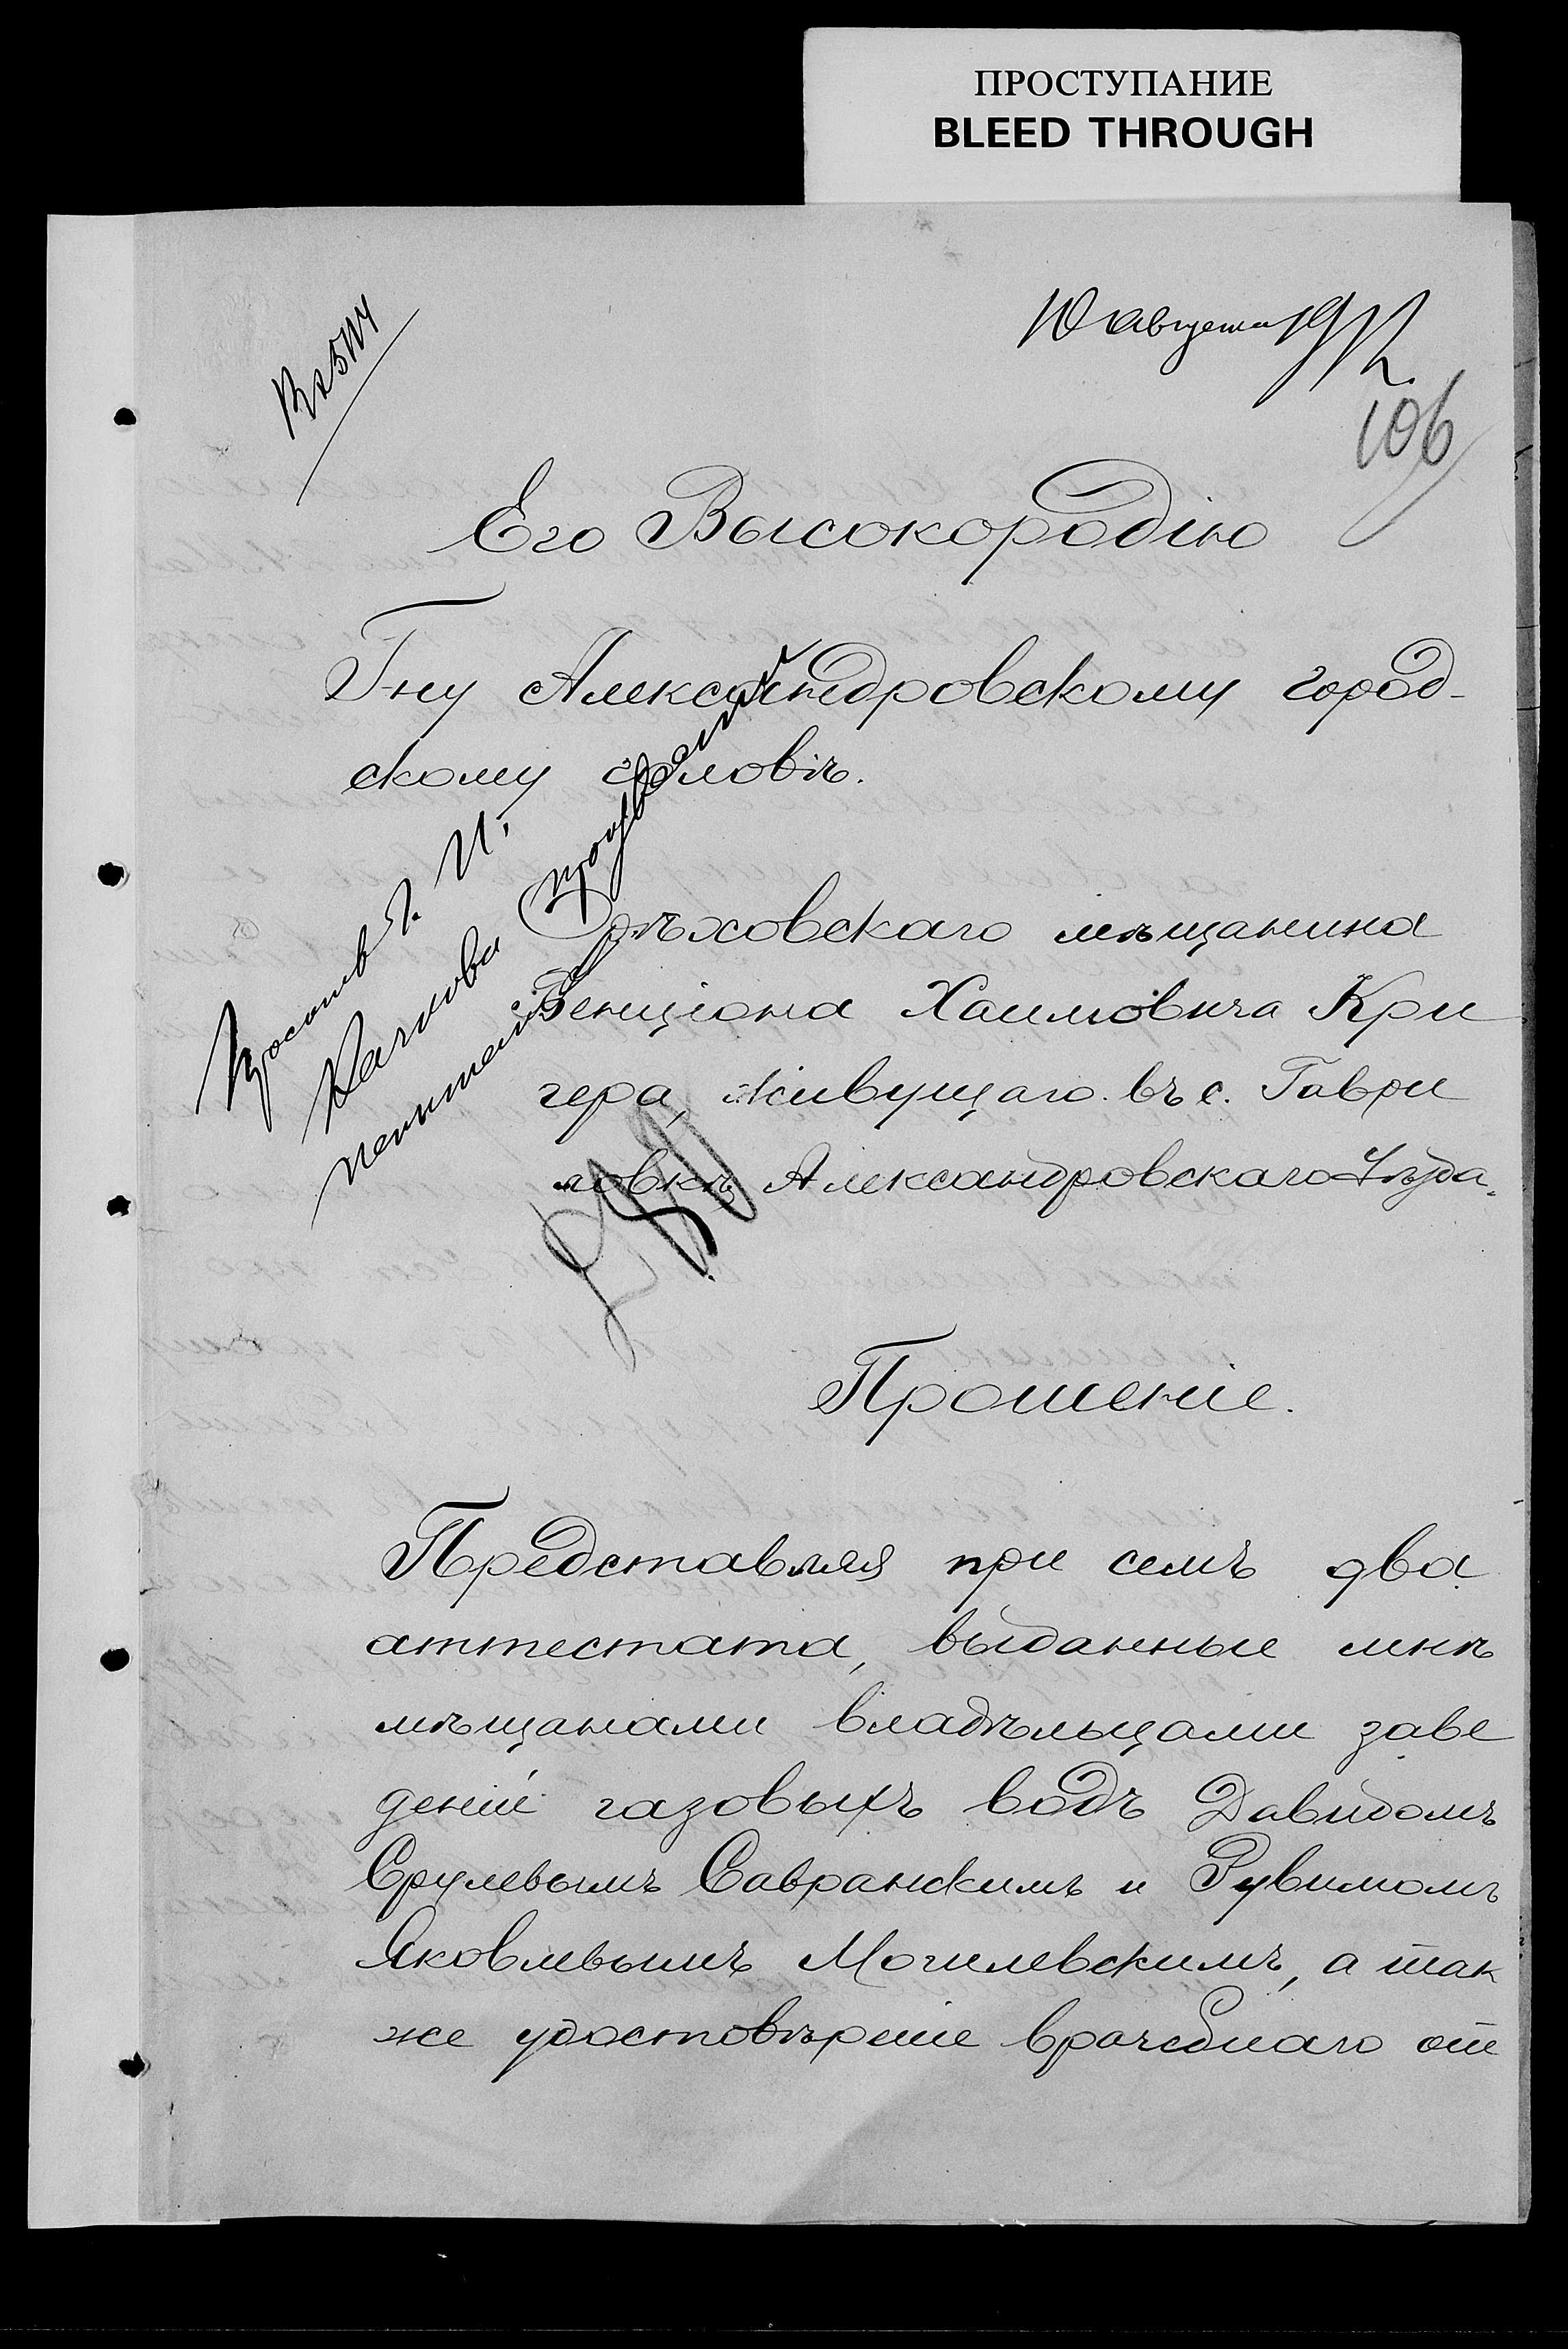 ПРОСТУПАНИЕ
BLEED THROUGH
Вх 5114
10 августа 1912
106
Его Высокородію
Гну Александровскому город-
скому головѣ.
Просить г. И.
произвести
Орѣховскаго мѣщанина
Бенціона Хаимовича Кри
гера, живущаго въ с. Гаври
ловкѣ Александровскаго Уѣзда.
Прошеніе.
Представляя при семъ два
аттестата, выданные мнѣ
мѣщанами владѣльцами заве
деній газовыхъ водъ Давидомъ
Срулевымъ Савранскимъ и Рувимомъ
Яковлевымъ Могилевскимъ, а так
же удостовѣреніе врачебнаго от